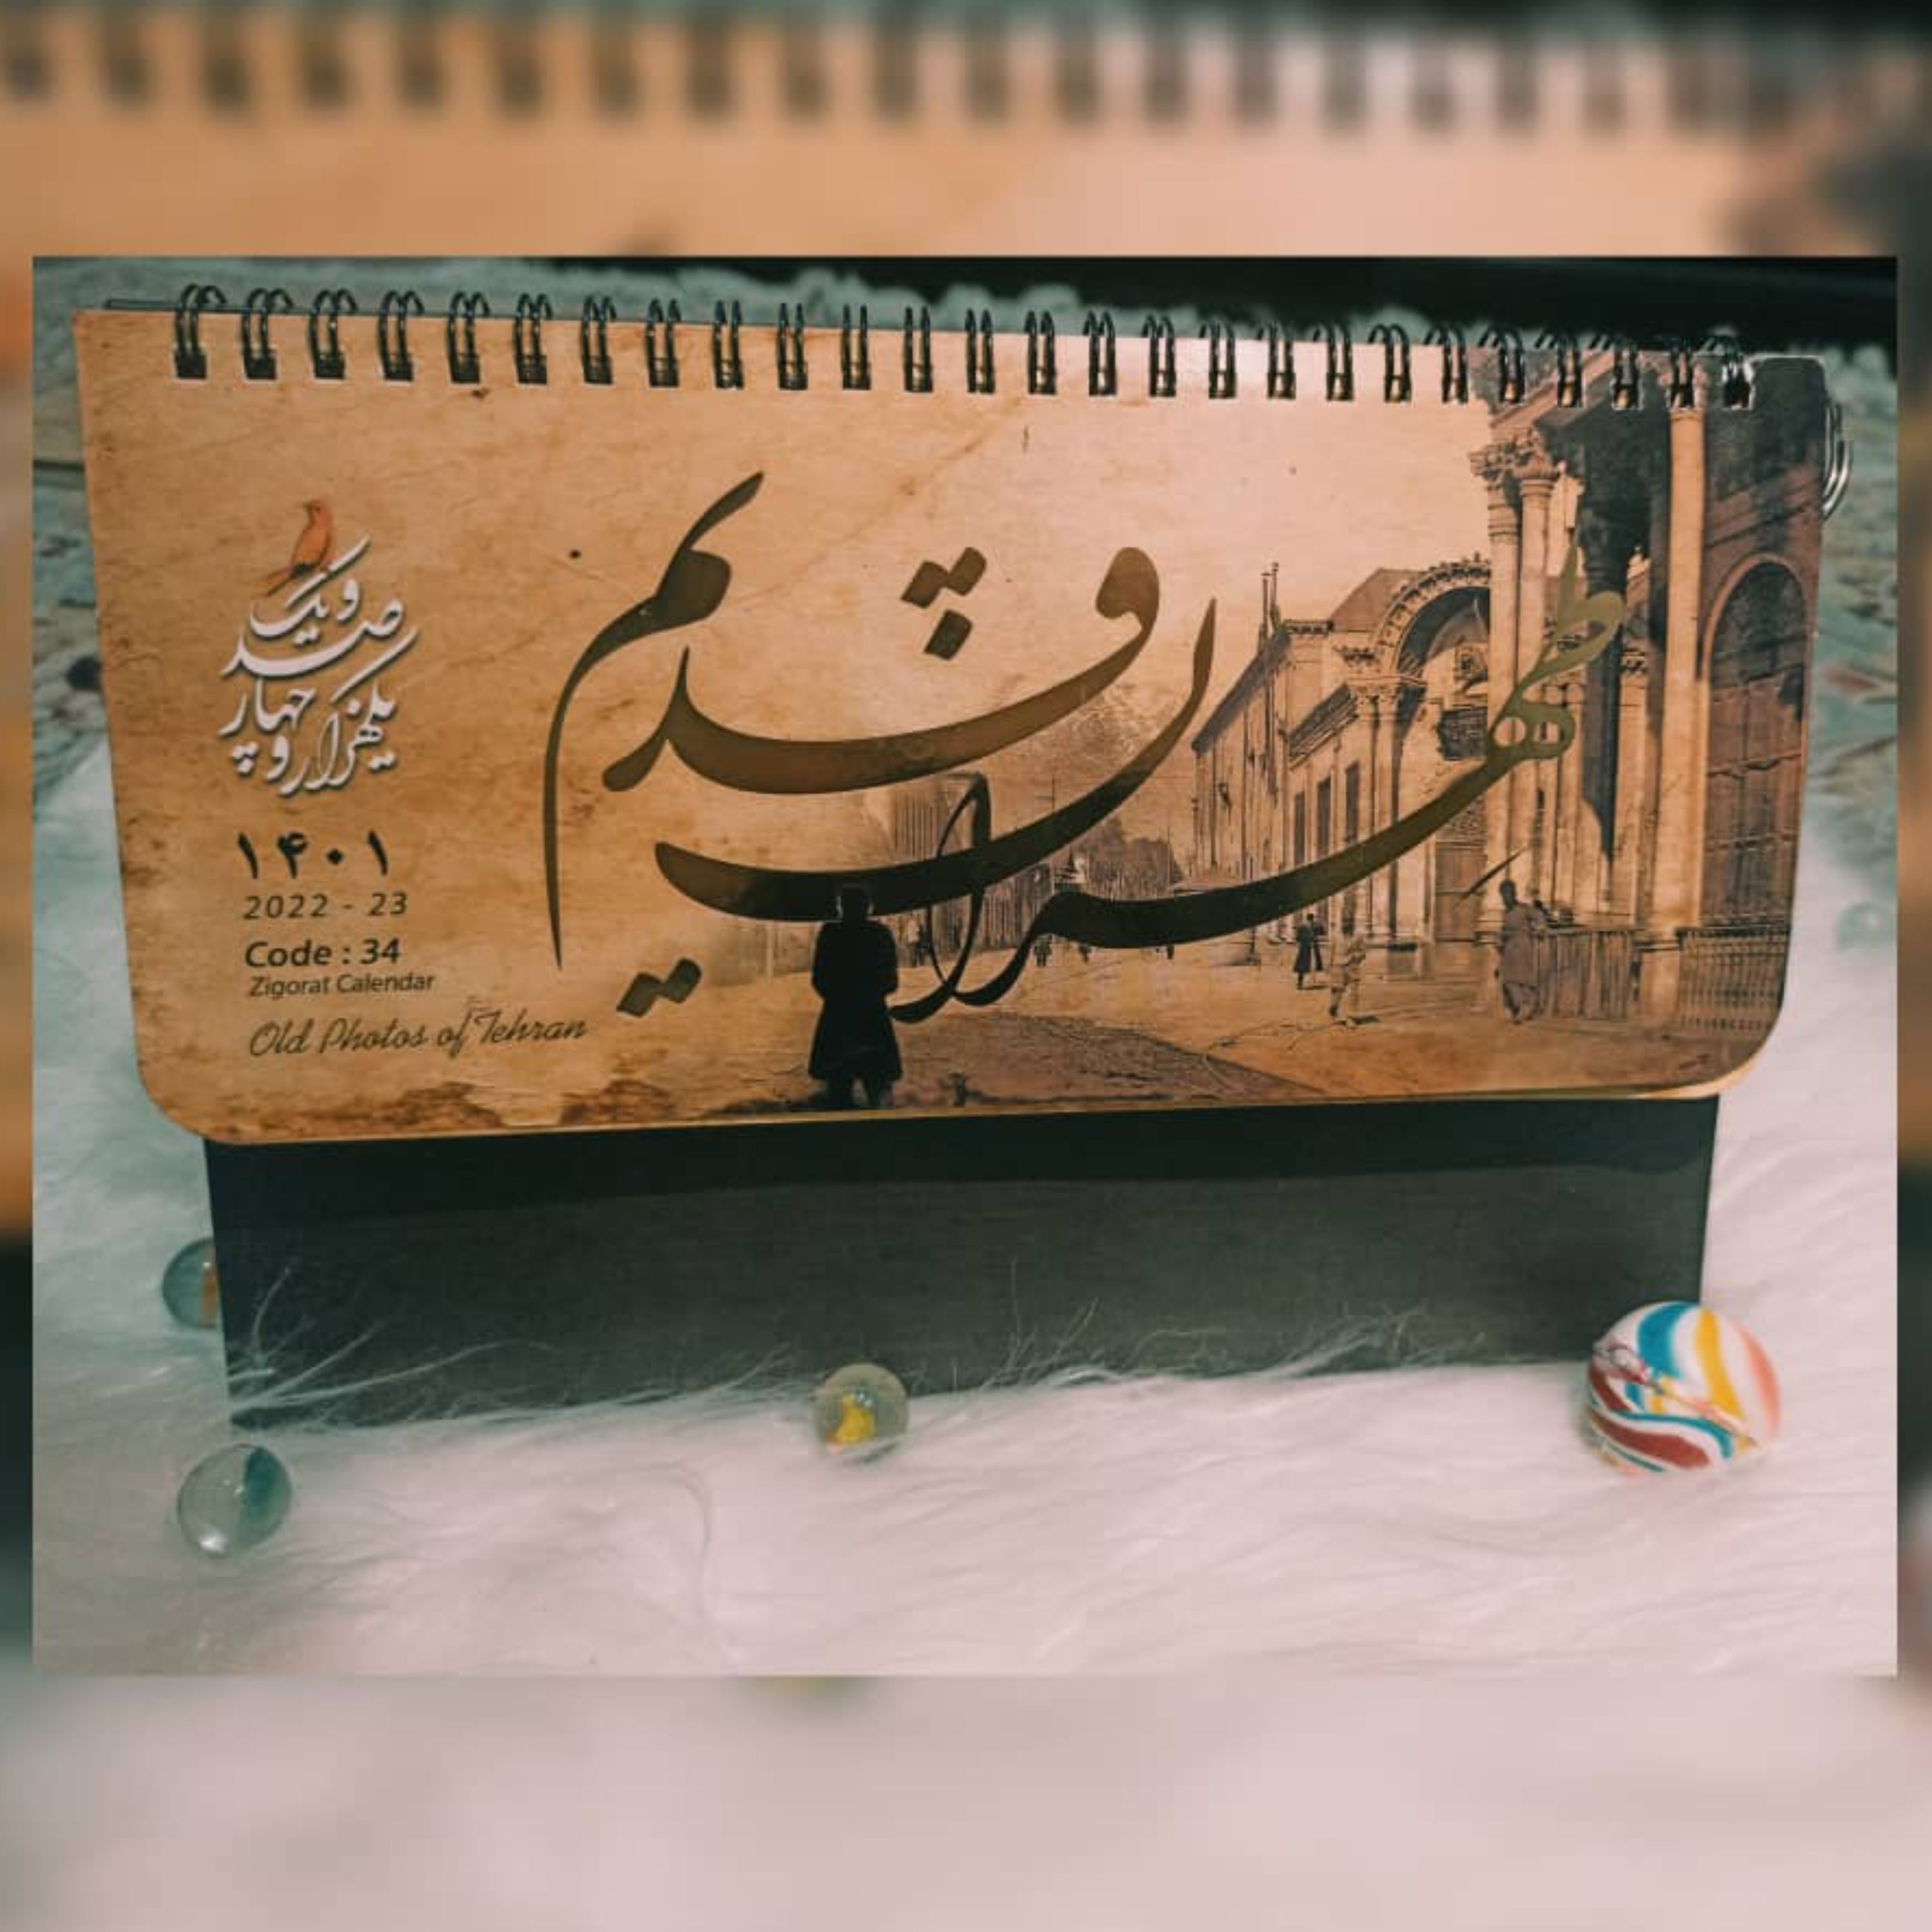 طهران قدیم
یکهزار و چهار
صد و یک
۱۴۰۱
2022 - 23
Code : 34
Zigorat Calendar
Old Photos of Tehran